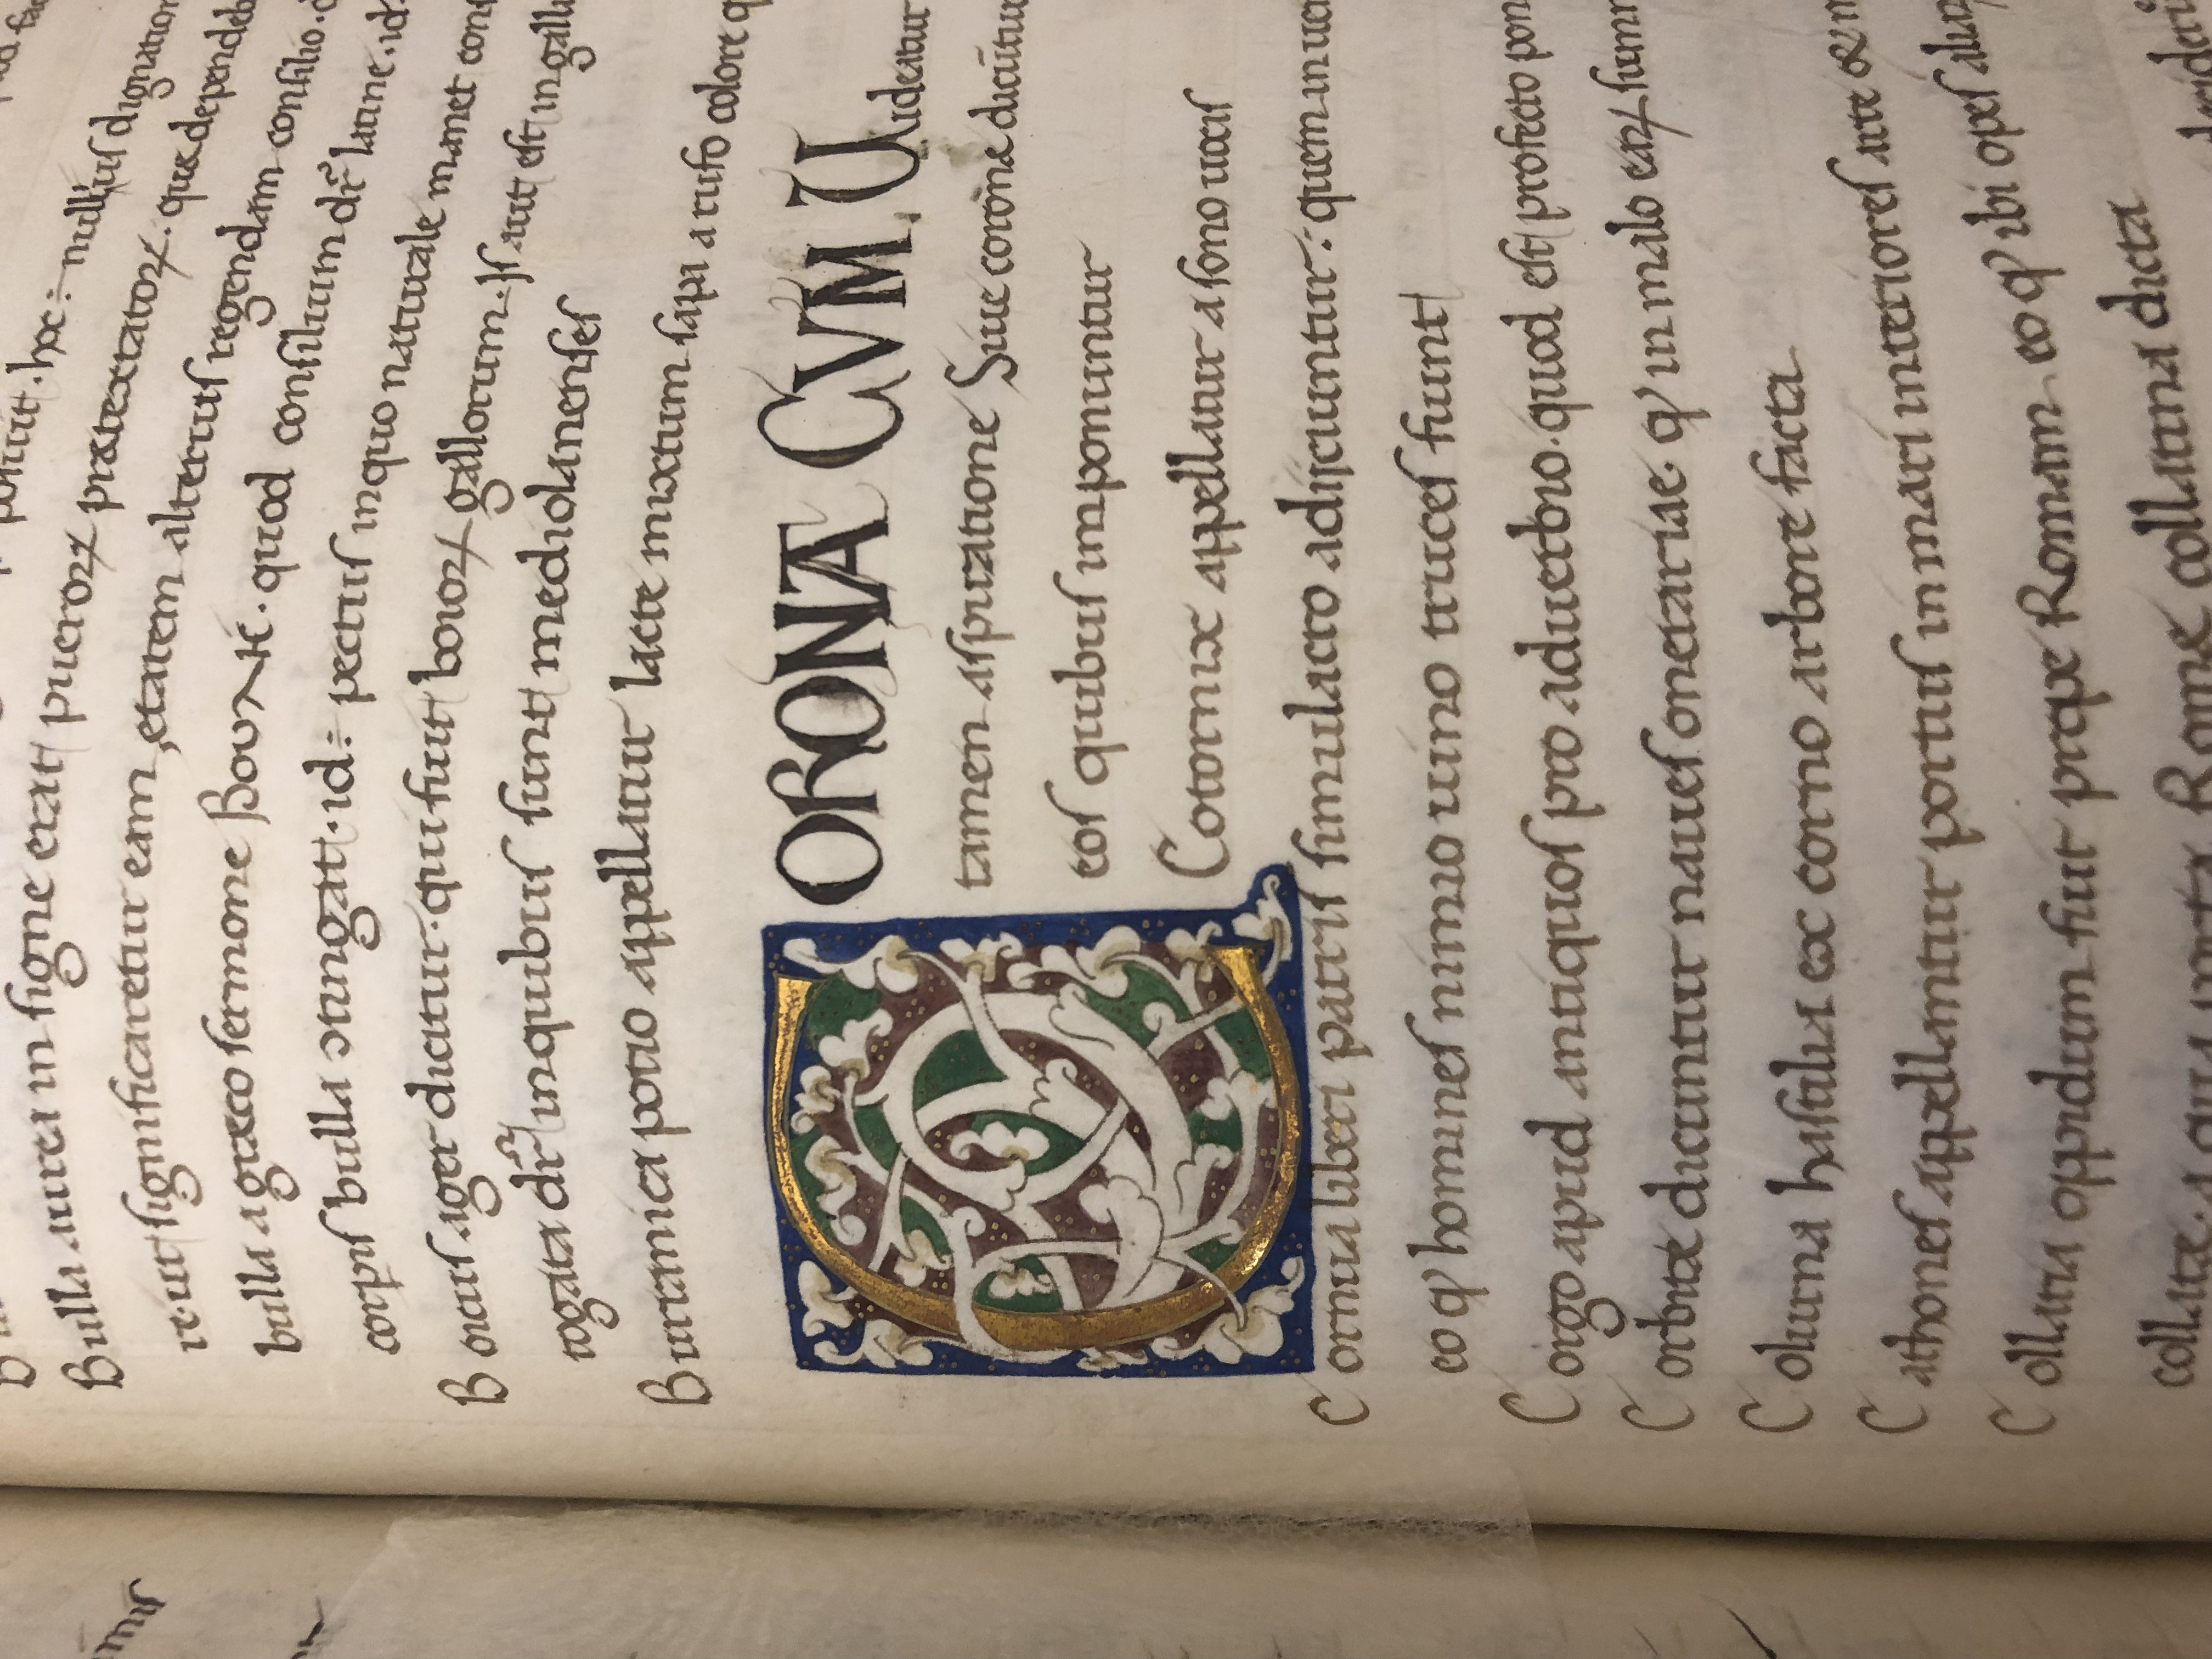 Bulla aurea insigne erat pueroꝝ prætextatoꝝ. quæ dependeb
significaretur eam ętatem alterius regendam consilio.
bulla a græco sermone Βουλη. quod consilium dr̄ latine. id
corpus bulla stringat. id: pectus in quo naturale manet cons
Boius ager dicitur. qui fuit boioꝝ gallorum. Is aut est in galli
togata dr̄ in quibus sunt mediolanenses
Burranica potio appellatur lacte mixtum sapa a rufo colore q
CORONA CVM. Uideatur
tamen aspiratione Siue corōne dicūtur
eos quibus imponuntur
Cotornix appellatur a sono uocis
Cornua liberi patris simulacro adijciuntur: quem in
eo qͥ homines nimio uino truces fiunt
Corgo apud antiquos pro aduerbio. quod est profecto pon
Corbitæ dicuntur naues onerariae. qͥ in malo eaꝝ summ
Colurna hastilia ex corno arbore facta
Cathones appellantur portus in mari interiores arte &
Collatia oppidum fuit prope Romam eo qͥ ibi opes aliaꝝ
collatæ. a qua porta Romę collatina dicta